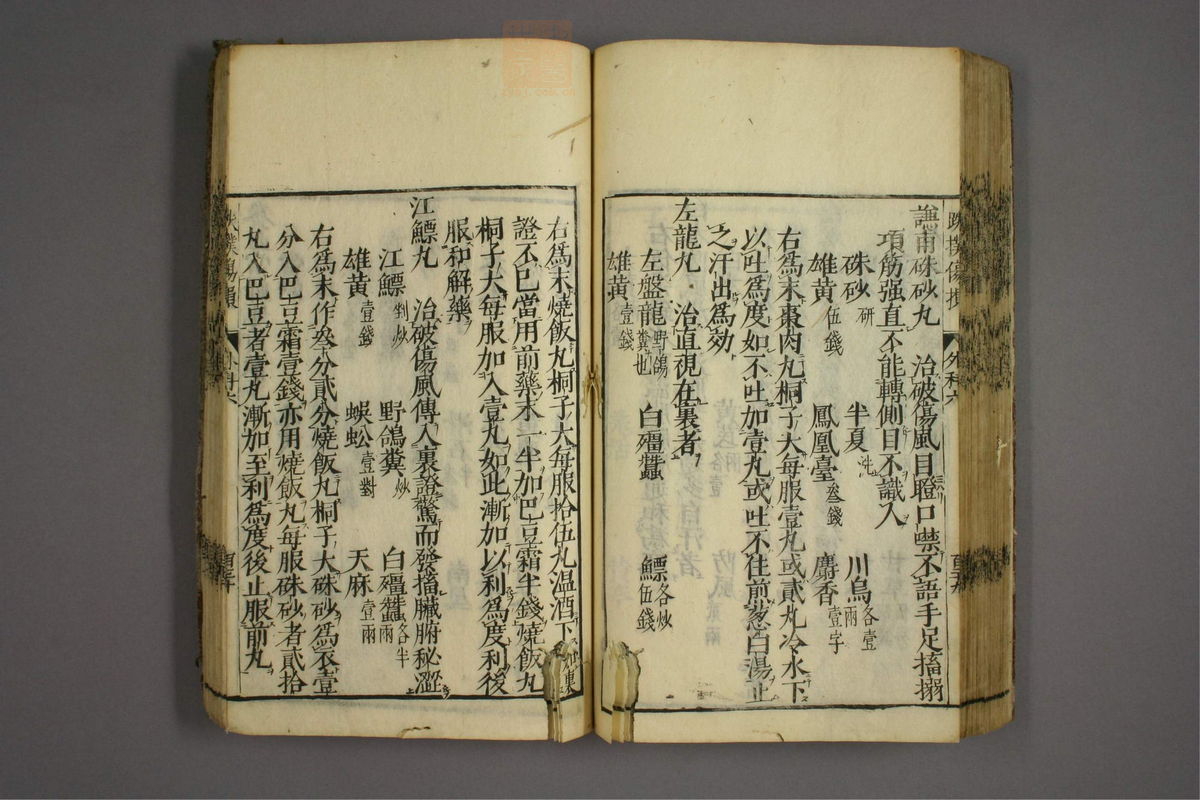 謙甫硃砂丸　治破傷風目瞪口噤不語手足搐搦
項筋强直不能轉側目不識人
硃砂研　半夏洗　川烏各壹兩
雄黃伍錢　鳳凰臺叁錢　麝香壹字
右爲末棗肉丸桐子大每服壹丸或貳丸冷水下
以吐爲度如不吐加壹丸或吐不住煎葱白湯止
之汗出爲効
左龍丸　治直視在裏者
左盤龍野鴿糞也　白殭蠶　鰾各炒伍錢
雄黃壹錢
右爲末燒飯丸桐子大每服拾伍丸温酒下如裏
證不已當用前藥末一半加巴豆霜半錢燒飯丸
桐子大每服加入壹丸如此漸加以利爲度利後
服和解藥
江鰾丸　治破傷風傳入裏證驚而發搐臟腑秘澀
江鰾剉炒　野鴿糞炒　白殭蠶各半兩
雄黃壹錢　蜈蚣壹對　天麻壹兩
右爲末作叁分貳分燒飯丸桐子大硃砂爲衣壹
分入巴豆霜壹錢亦用燒飯丸每服硃砂者貳拾
丸入巴豆者壹丸漸加至利爲度後止服前丸